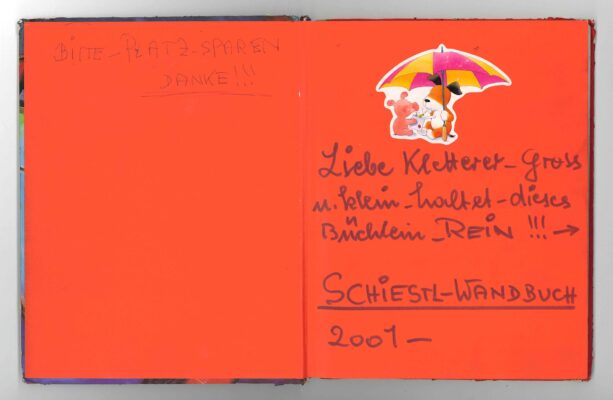 BITTE-PLATZ-SPAREN
DANKE!!!
Liebe Kletterer-Gross
u. klein-haltet-dieses
Büchlein-REIN !!! →
SCHIESTL-WANDBUCH
2001-